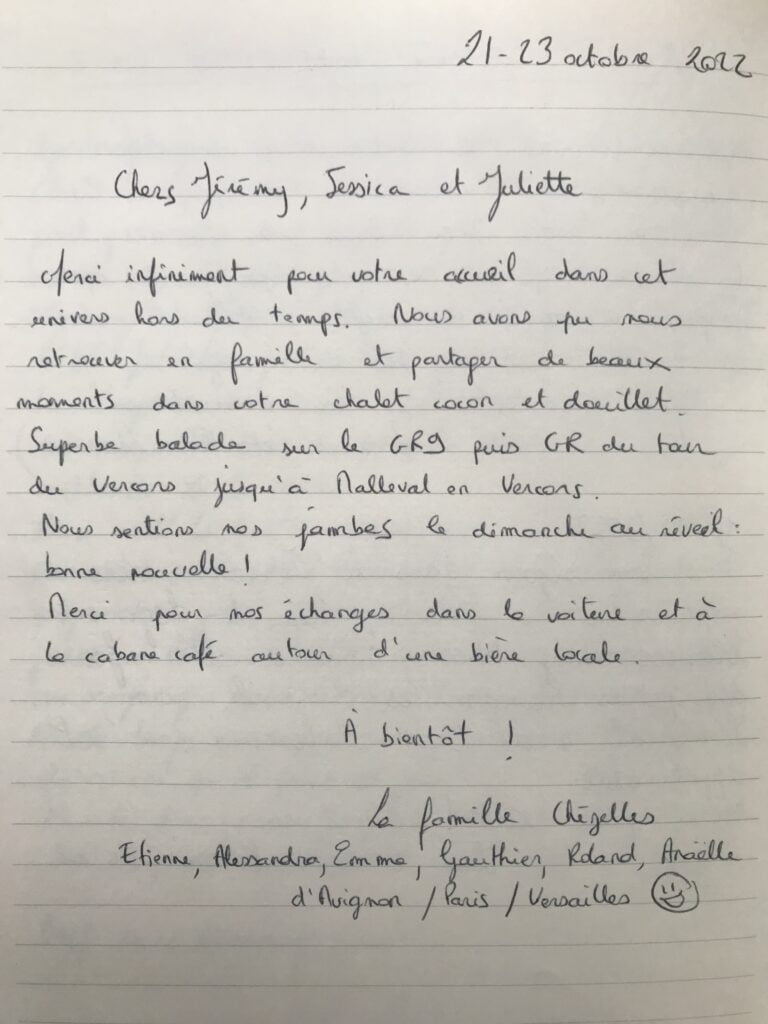 21-23 octobre 2022
Chers Jérémy, Jessica et Juliette
Merci infiniment pour votre accueil dans cet
univers hors du temps. Nous avons pu nous
retrouver en famille et partager de beaux
moments dans votre chalet cocon et douillet.
Superbe balade sur le GR9 puis GR du tour
du Vercors jusqu'à Malleval en Vercors.
Nous sentions nos jambes le dimanche au réveil :
bonne nouvelle !
Merci pour nos échanges dans la voiture et à
la cabane café autour d'une bière locale.
À bientôt !
La famille Chézelles
Etienne, Alessandra, Emma, Gauthier, Roland, Anaëlle
d'Avignon / Paris / Versailles